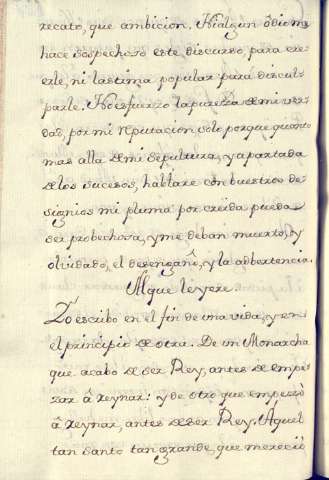 recato, que ambicion. Ni algun ôdio me
hace sospechoso este discurso, para cre-
erle, ni lastima popular para discul-
parle. No esfuerzo la pureza de mi ver-
dad, por mi reputacion solo porque quanto
mas alla de mi sepultura, y apartada
de los sucesos, hablare con buestros de-
signios mi pluma por creida pueda
ser probechosa, y me deban muerto, y
olvidado, el desengaño, y la adbertencia.
Al que leyere.
Yo escribo en el fin de una vida, y en
el principio de otra. De un Monarcha
que acabo de ser Rey, antes de empe-
zar â reynar: y de otro que empezò
â reynar, antes de ser Rey. Aquel
tan santo tan grande, que mereciò